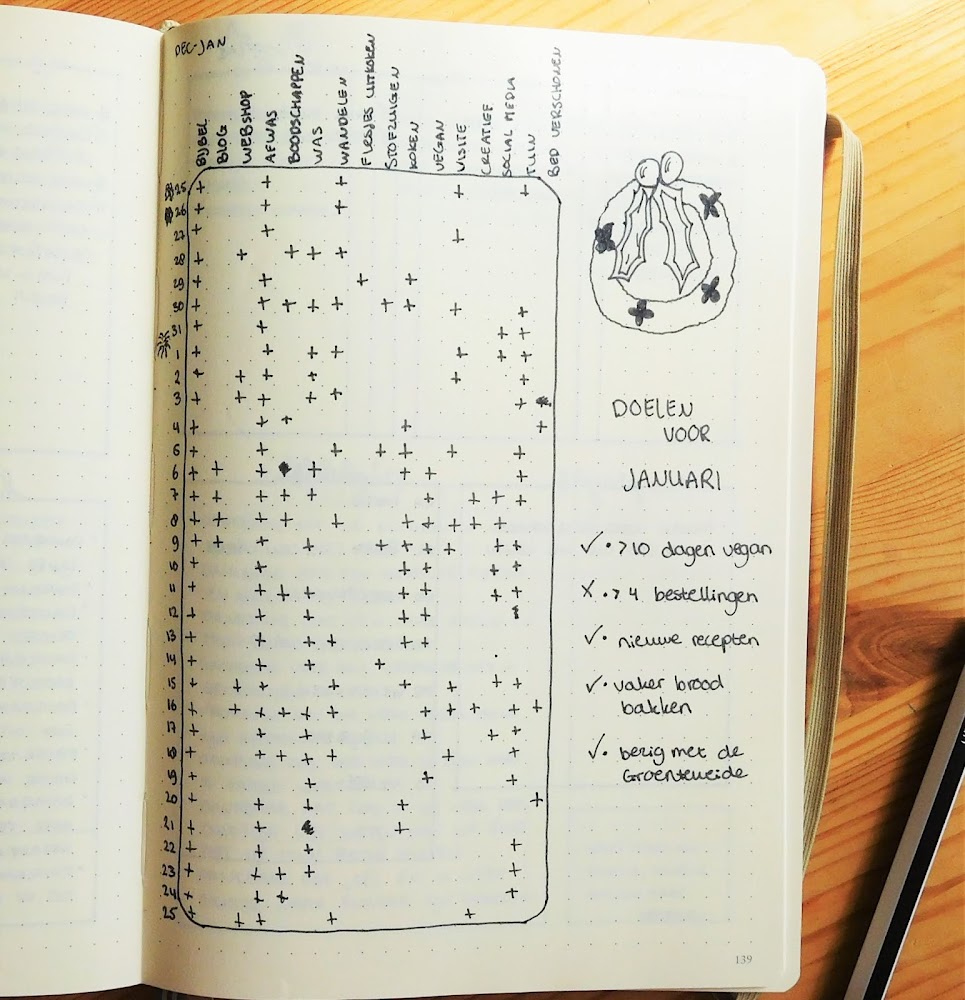 DEC-JAN
BIJBEL
BLOG
WEBSHOP
AFWAS
BOODSCHAPPEN
WAS
WANDELEN
FLESJES UITKOKEN
STOFZUIGEN
KOKEN
VEGAN
VISITE
CREATIEF
SOCIAL MEDIA
TUIN
BED VERSCHONEN
25
26
27
28
29
30
31
1
2
3
4
5
6
7
8
9
10
11
12
13
14
15
16
17
18
19
20
21
22
23
24
25
DOELEN
VOOR
JANUARI
✓ • >10 dagen vegan
X • > 4 bestellingen
✓ • nieuwe recepten
✓ • vaker brood
bakken
✓ • bezig met de
Groenteweide
139